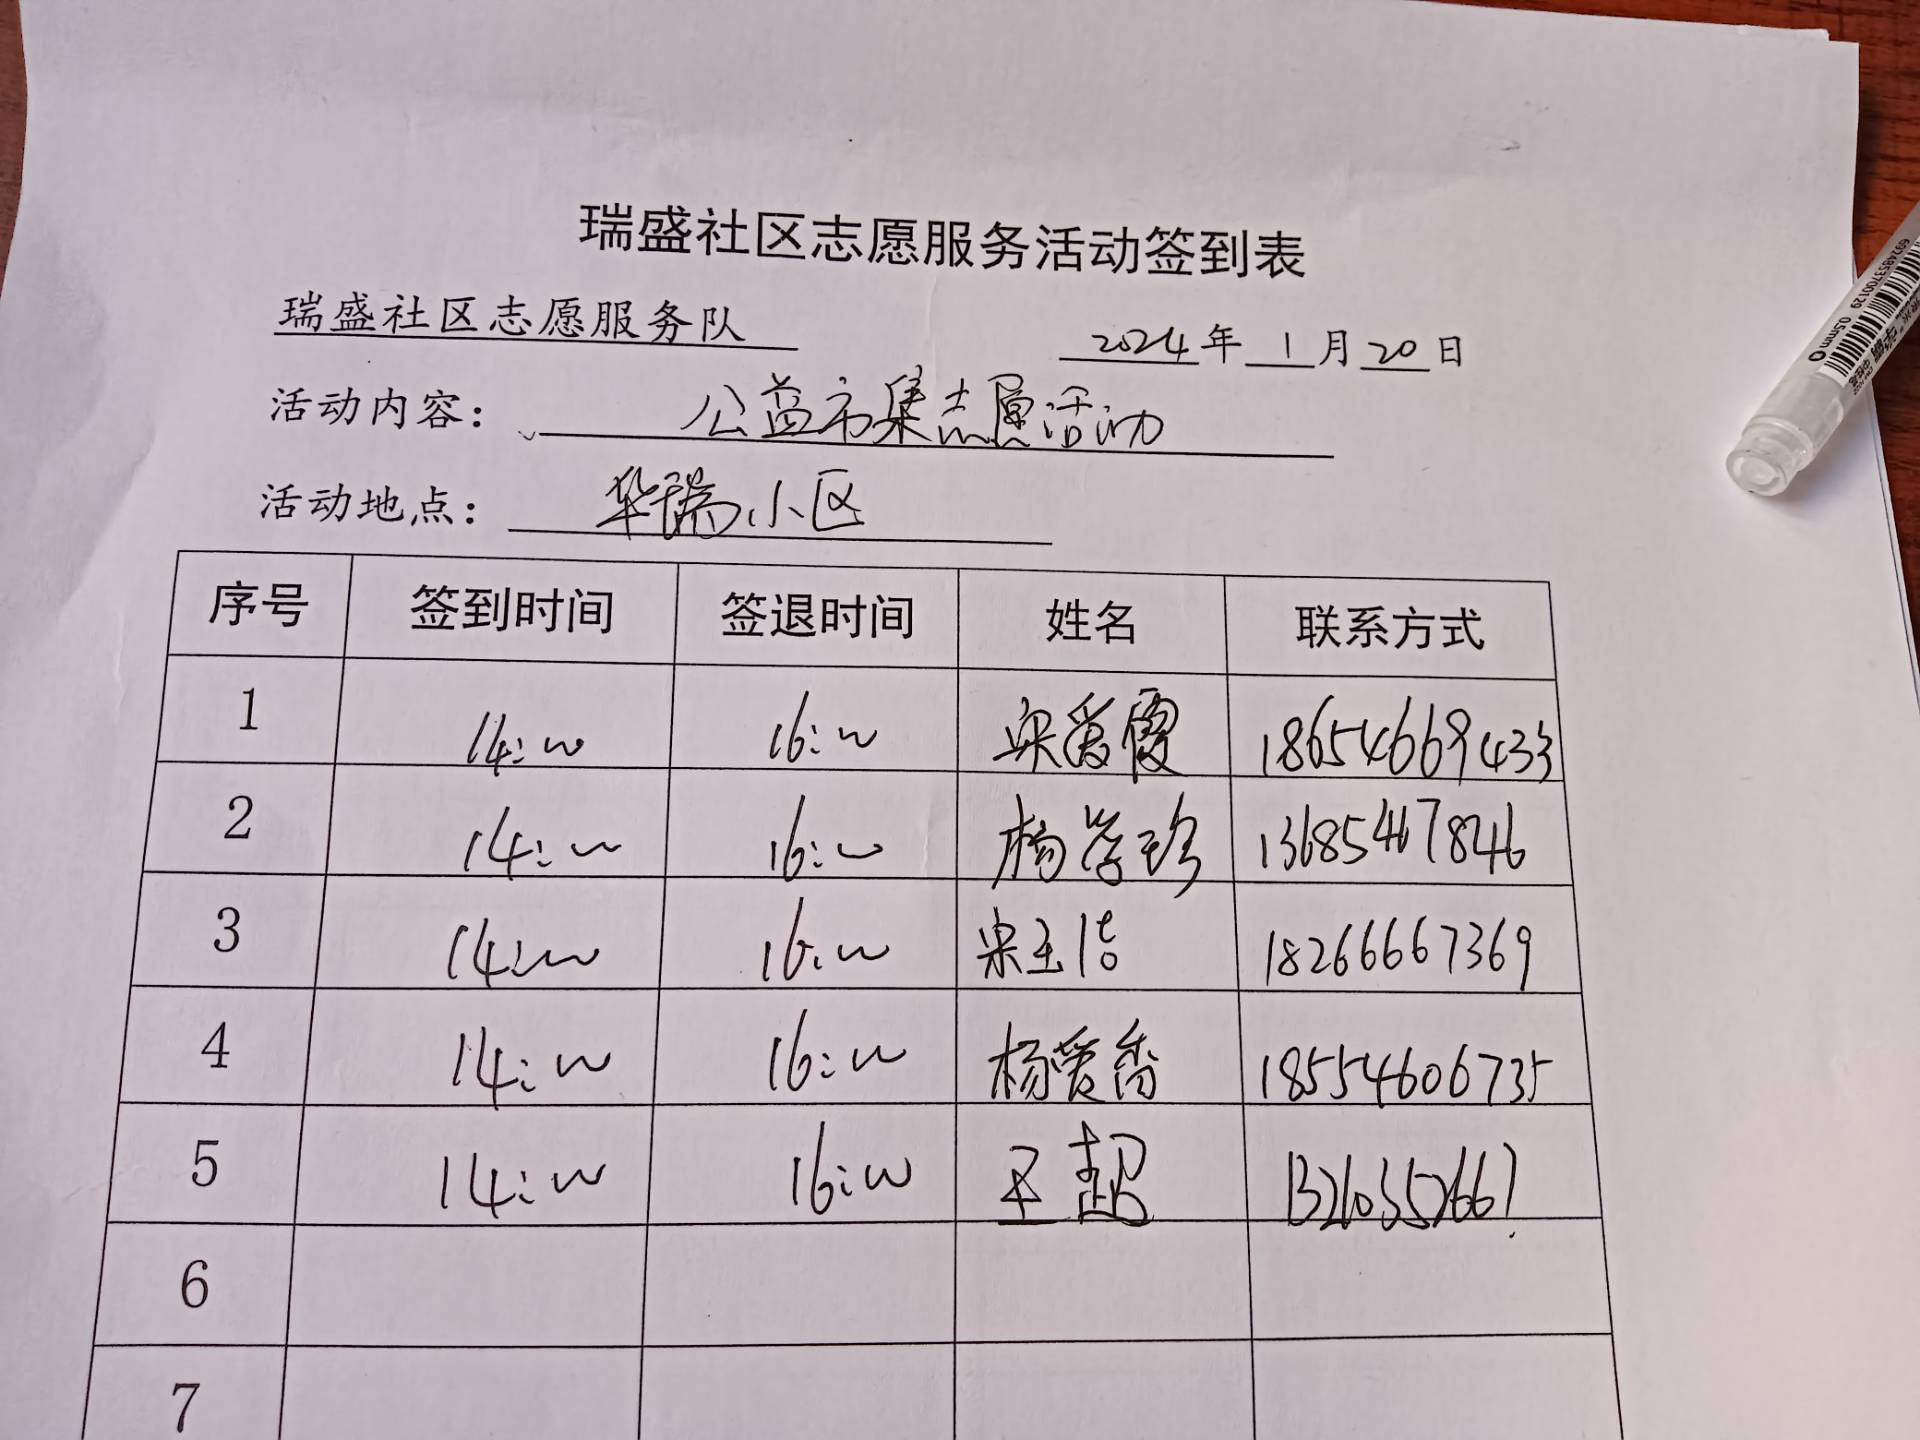 瑞盛社区志愿服务活动签到表
瑞盛社区志愿服务队 2024年 1月20日
活动内容: 公益市集志愿活动
活动地点: 华瑞小区
序号 签到时间 签退时间 姓名 联系方式
1 14:00 16:00 梁爱霞 18654669433
2 14:00 16:00 杨学珍 13685467846
3 14:00 16:00 18266667369
4 14:00 16:00 杨爱香 18554606735
5 14:00 16:00 王超
6
7
6924885700129 0.5mm